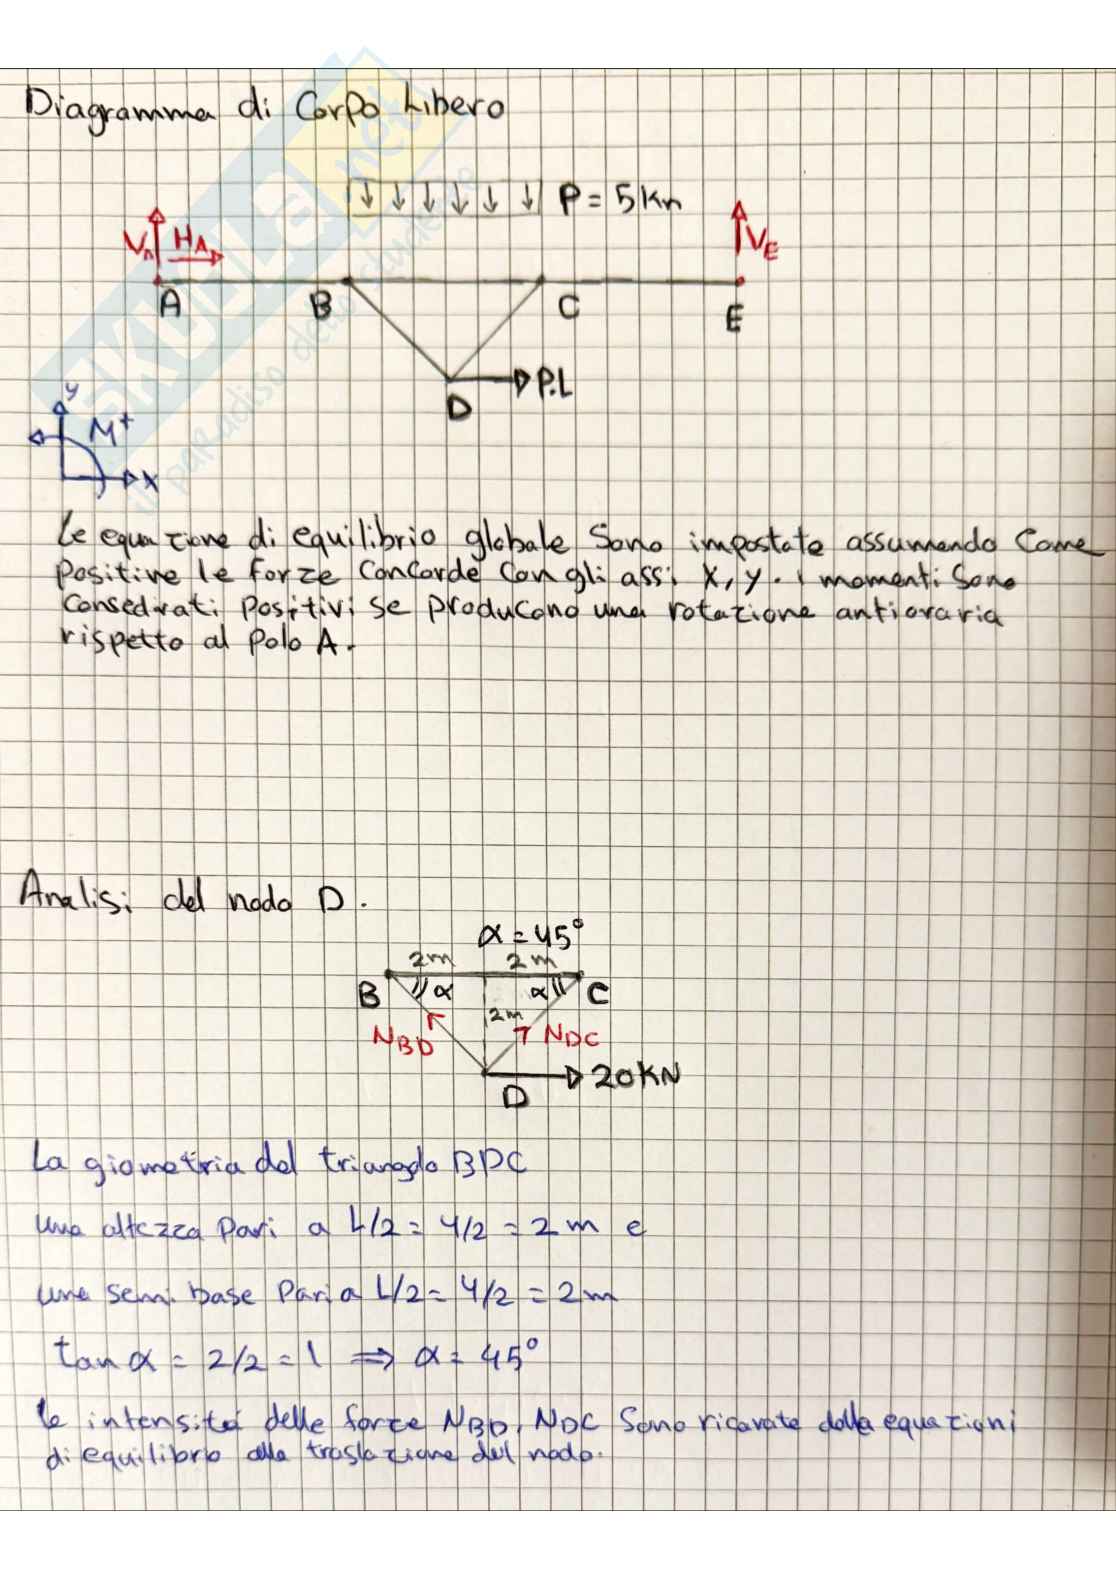 Diagramma di Corpo Libero
P = 5 kn
VA HA VE
A B C E
D P.L
y M+
x
Le equazione di equilibrio globale Sono impostate assumendo Come
Positive le forze Concorde Con gli assi x, y. i momenti Sono
Consedirati Positivi se Producono una rotazione antioraria
rispetto al Polo A.
Analisi del nodo D.
α = 45°
2m 2m
B α α C
2m
NBD NDC
20KN
D
La giometria del triangolo BDC
una altezza Pari a L/2 = 4/2 = 2 m e
une semi base Pari a L/2 = 4/2 = 2m
tan α = 2/2 = 1 ⇒ α = 45°
le intensità delle forze NBD, NDC Sono ricavate dalla equazioni
di equilibrio alla traslazione del nodo.
SKUOLA.net
il paradiso dello studente